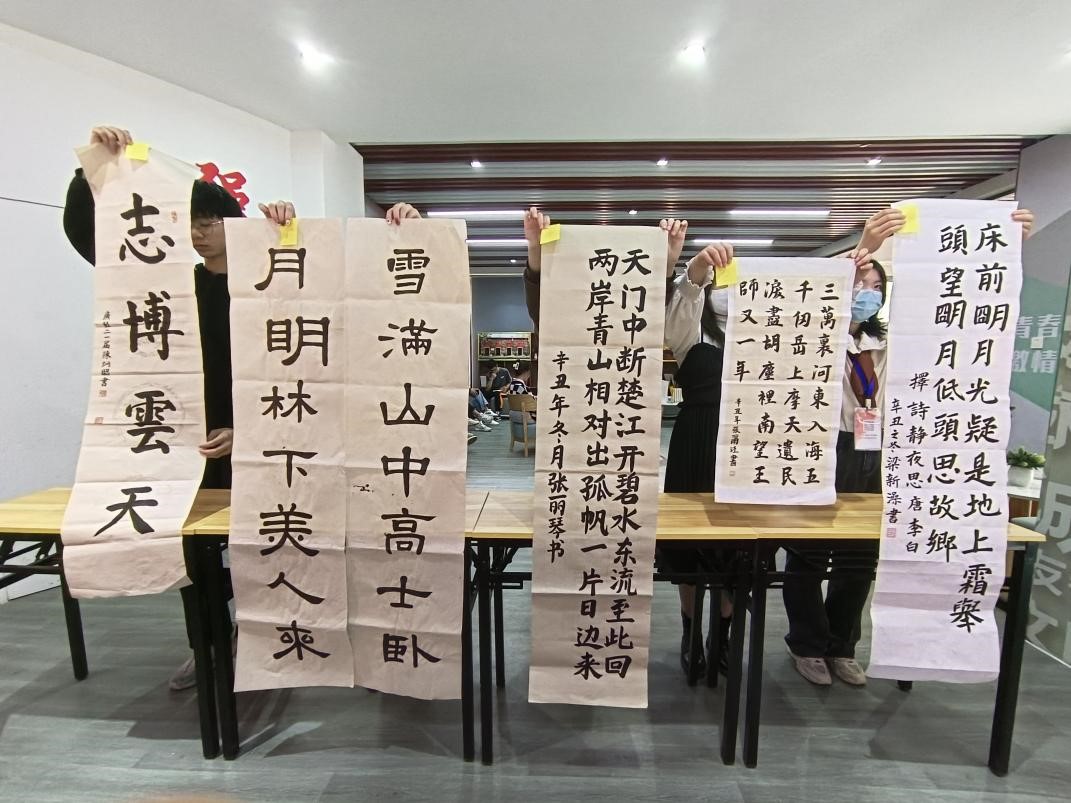 志博雲天
雪滿山中高士卧
月明林下美人來
天门中断楚江开碧水东流至此回
两岸青山相对出孤帆一片日边来
辛丑年冬月张丽琴书
三萬裏河東入海五
千仞岳上摩天遺民
淚盡胡塵裡南望王
師又一年
辛丑年張書
床前明月光疑是地上霜舉
頭望明月低頭思故鄉
擇詩静夜思唐李白
辛丑之冬梁新書
青春
激情